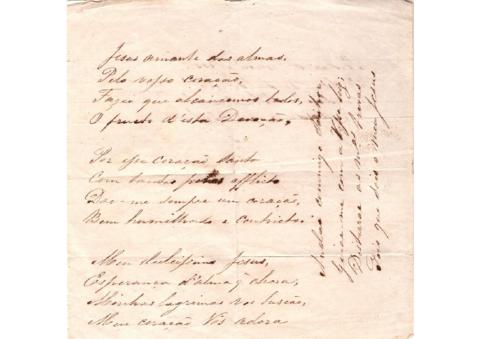 Jesus amante das almas.
Pelo vosso coração,
Fazei que alcancemos todos,
O fructo d'esta Devoção,
Por esse coração Santo
Com tantas penas afflicto
Dae-me sempre um coração,
Bem humilhado e contricto:
Meu dulcissimo Jesus,
Esperança d'alma q̃ chora,
Minhas lagrimas vos buscão,
Meu coração Vos adora
comigo
Guiae-me com a
as
Pois que sois o meu Jesus